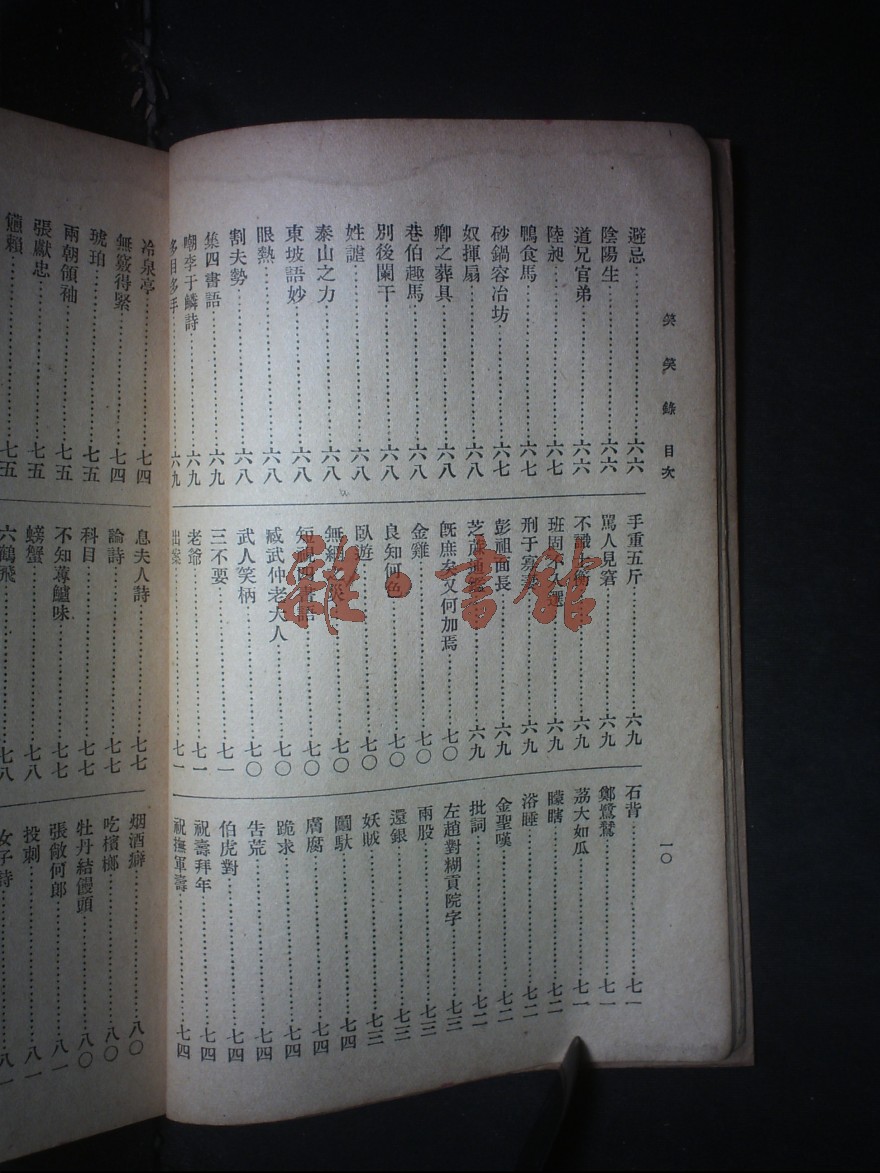 笑笑錄 目次
一〇
避忌……六六
陰陽生……六六
道兄官弟……六六
陸昶……六七
鴨食馬……六七
砂鍋容冶坊……六七
奴揮扇……六八
卿之葬具……六八
巷伯趣馬……六八
別後闌干……六八
姓謔……六八
泰山之力……六八
東坡語妙……六八
眼熱……六八
割夫勢……六八
集四書語……六九
嘲李于鱗詩……六九
多目多手……六九
手重五斤……六九
罵人見窘……六九
不識 ……六九
班固不入選……六九
刑于寡妻……六九
彭祖面長……六九
芝麻通鑑……六九
既庶矣又何加焉……七〇
金雞……七〇
良知何色……七〇
臥遊……七〇
無 ……七〇
短視四書語……七〇
臧武仲老大人……七〇
武人笑柄……七〇
三不要……七一
老爺……七一
出案……七一
石背……七一
鄭鷺鷥……七一
荔大如瓜……七一
矇瞎……七二
浴睡……七二
金聖嘆……七二
批詞……七二
左趙對糊貢院字……七三
兩股……七三
還銀……七三
妖賊……七三
圖馱……七四
膚腐……七四
跪求……七四
告荒……七四
伯虎對……七四
祝壽拜年……七四
祝撫軍壽……七四
冷泉亭……七四
無簽得緊……七四
琥珀……七五
兩朝領袖……七五
張獻忠……七五
憊賴……七五
息夫人詩……七七
論詩……七七
科目……七七
不知蓴鱸味……七七
螃蟹……七八
六鶴飛……七八
烟酒癖……八〇
吃檳榔……八〇
牡丹結饅頭……八〇
張敞何郎……八一
投刺……八一
女子詩……八一
雜·書館